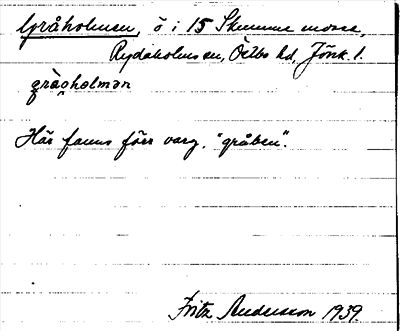 Gråholmen, ö i 15 Skumme mosse,
Rydaholms sn, Östbo hd, Jönk. l.
gràǥhòlmən
Här fanns förr varg, "gråben".
Fritz Andersson 1939.